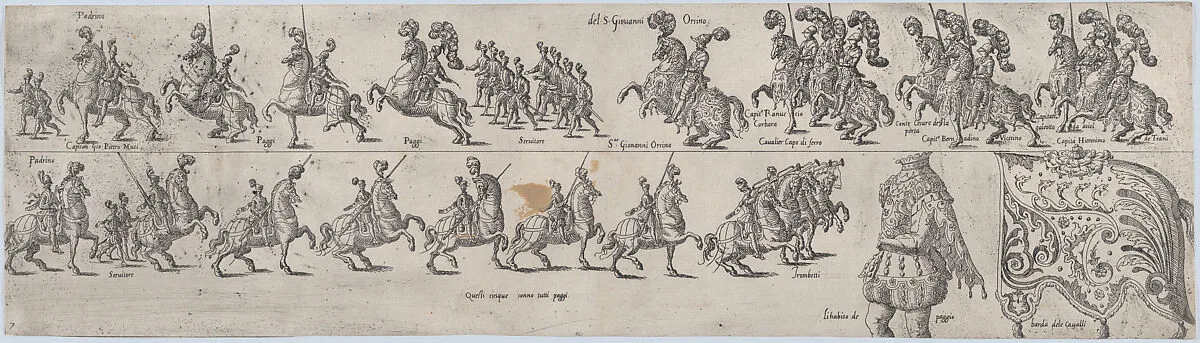 Padrino
del S. Giovanni Orsino
Capitan Gio. Pietro Muti
Paggi
Paggi
Seruitore
S.or Giovanni Orsino
Capit.o Ranuccio
Corbara
Cavalier Capo di ferro
Conte Cesare della
porta
Capit.o Bernardino
Capitan
Capitā Hieronimo
de Trani
Padrino
Seruitore
Questi cinque sonno tutti paggi.
Trombetti
Lihabito de paggio
barda dele Cavalli
7